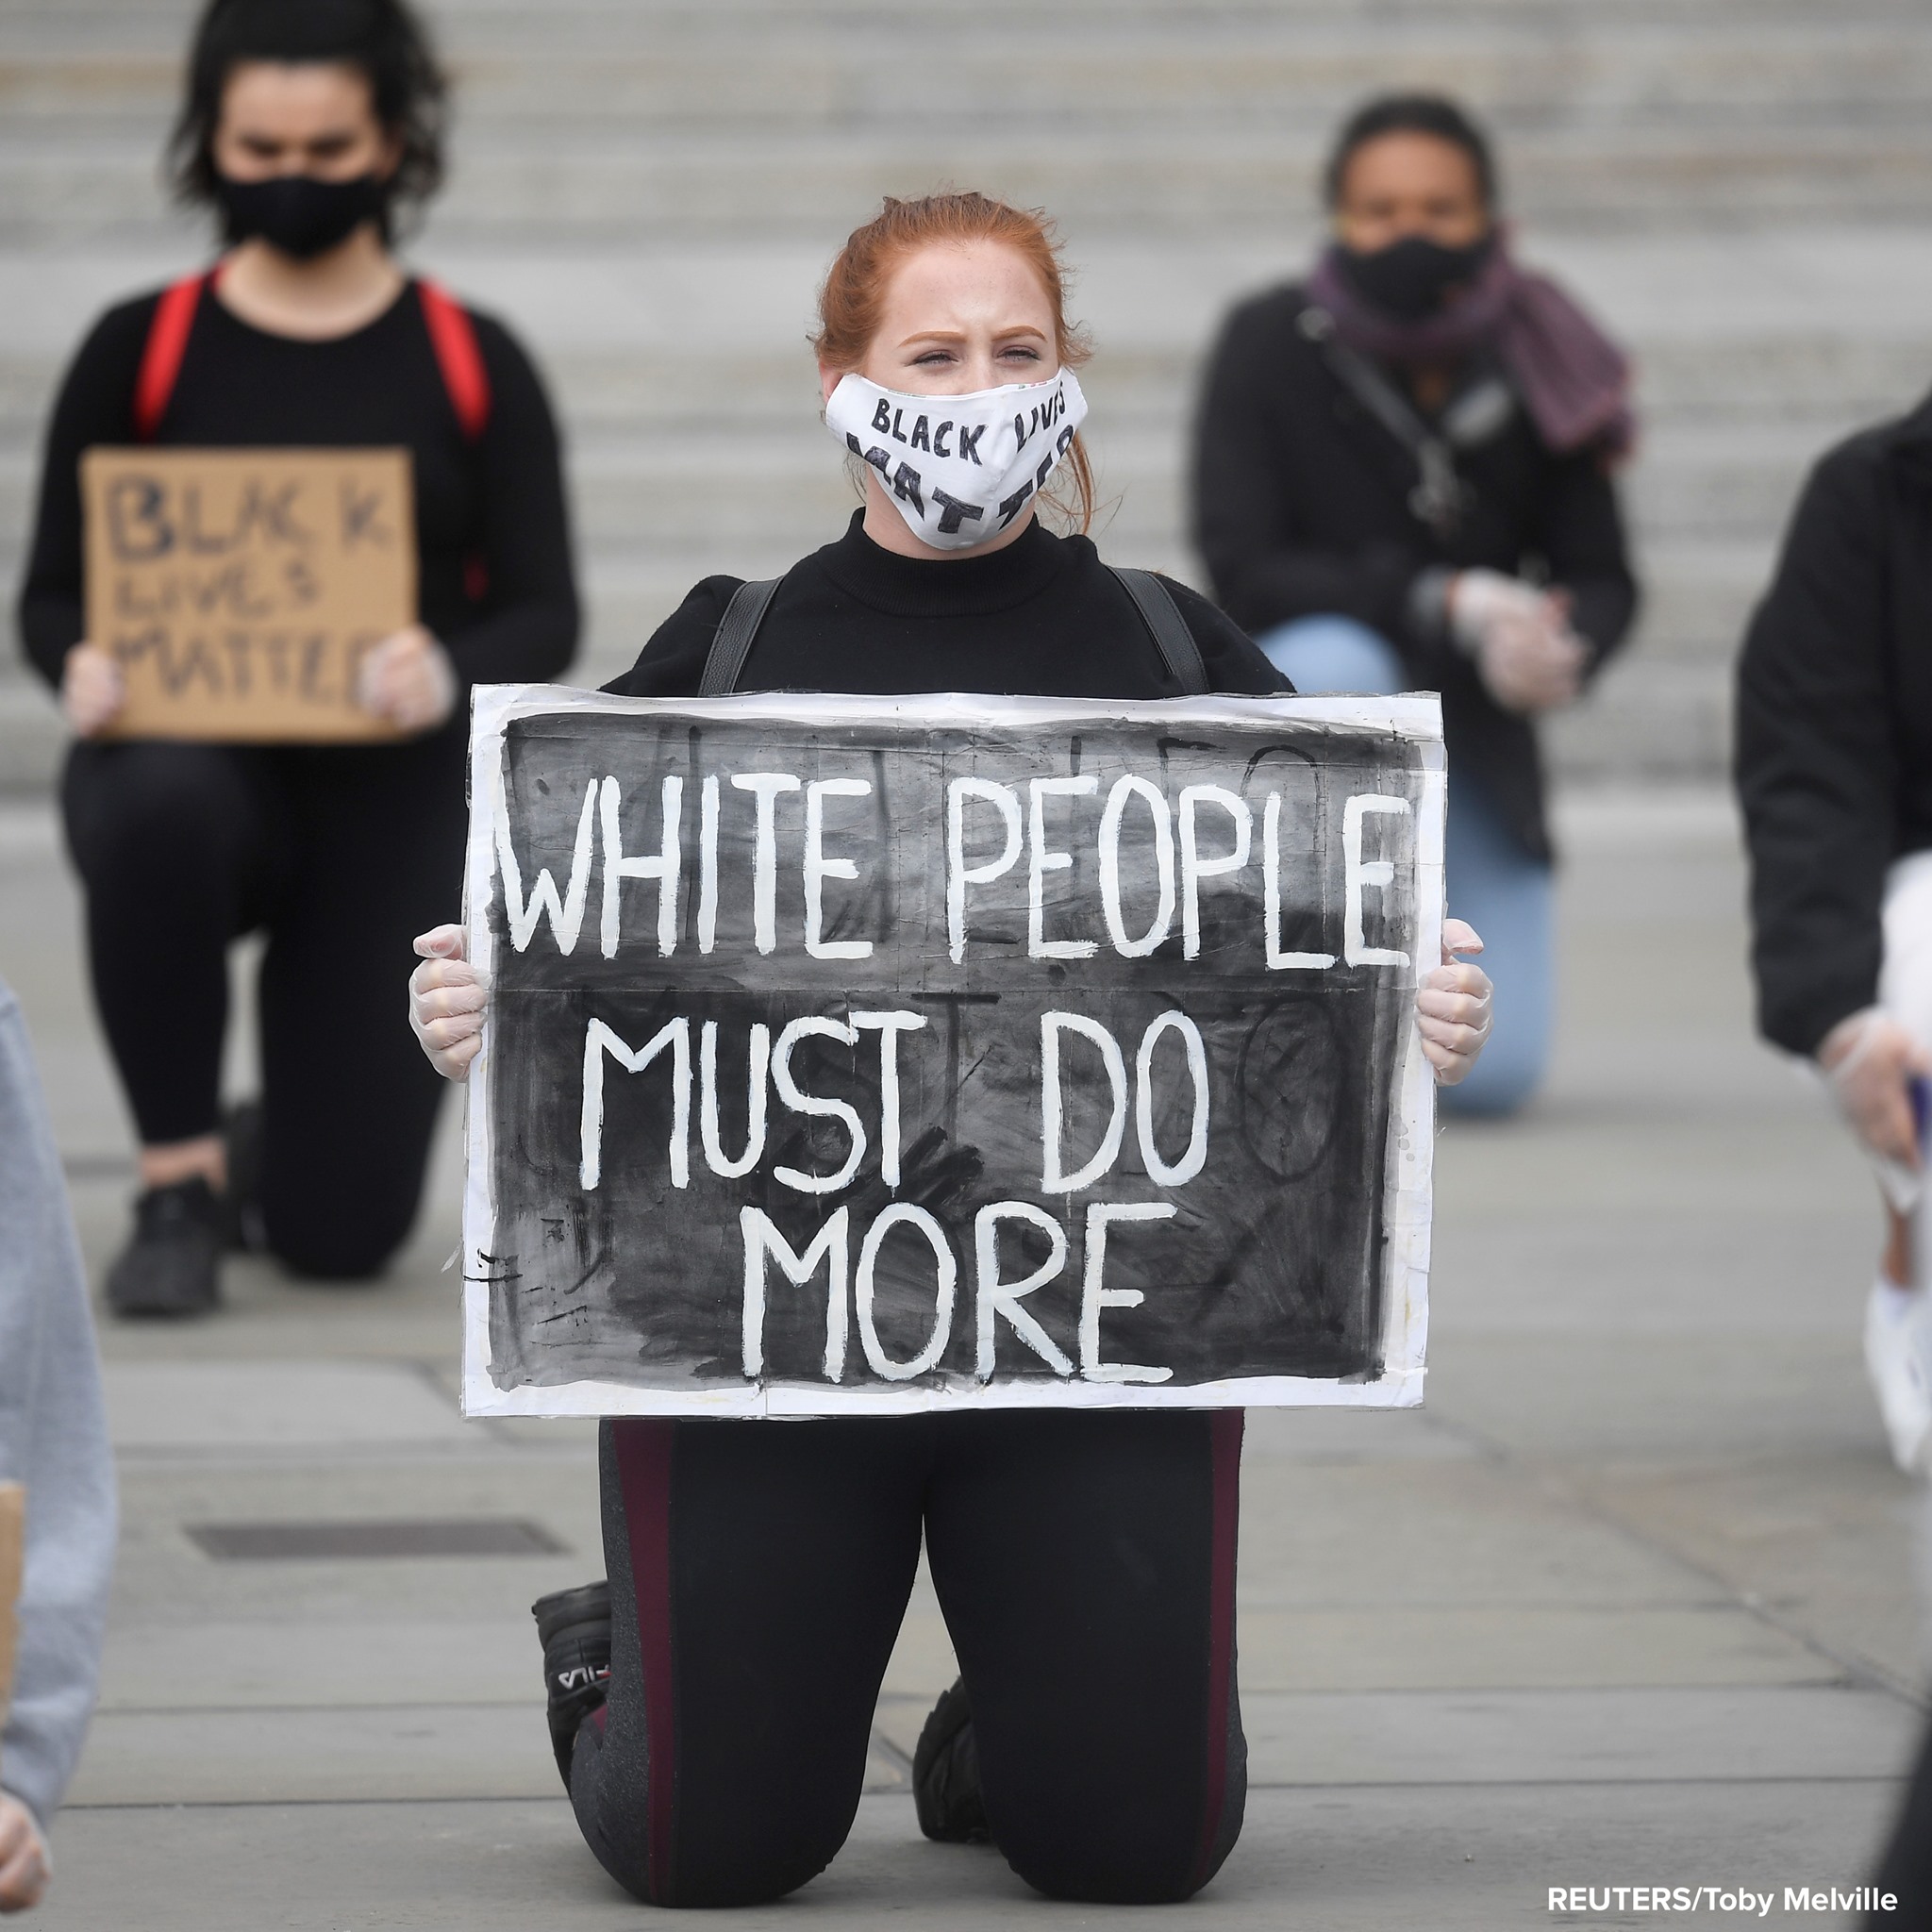 BLACK LIVES
MATTER
BLACK
LIVES
MATTER
WHITE PEOPLE
MUST DO
MORE
FILA
REUTERS/Toby Melville